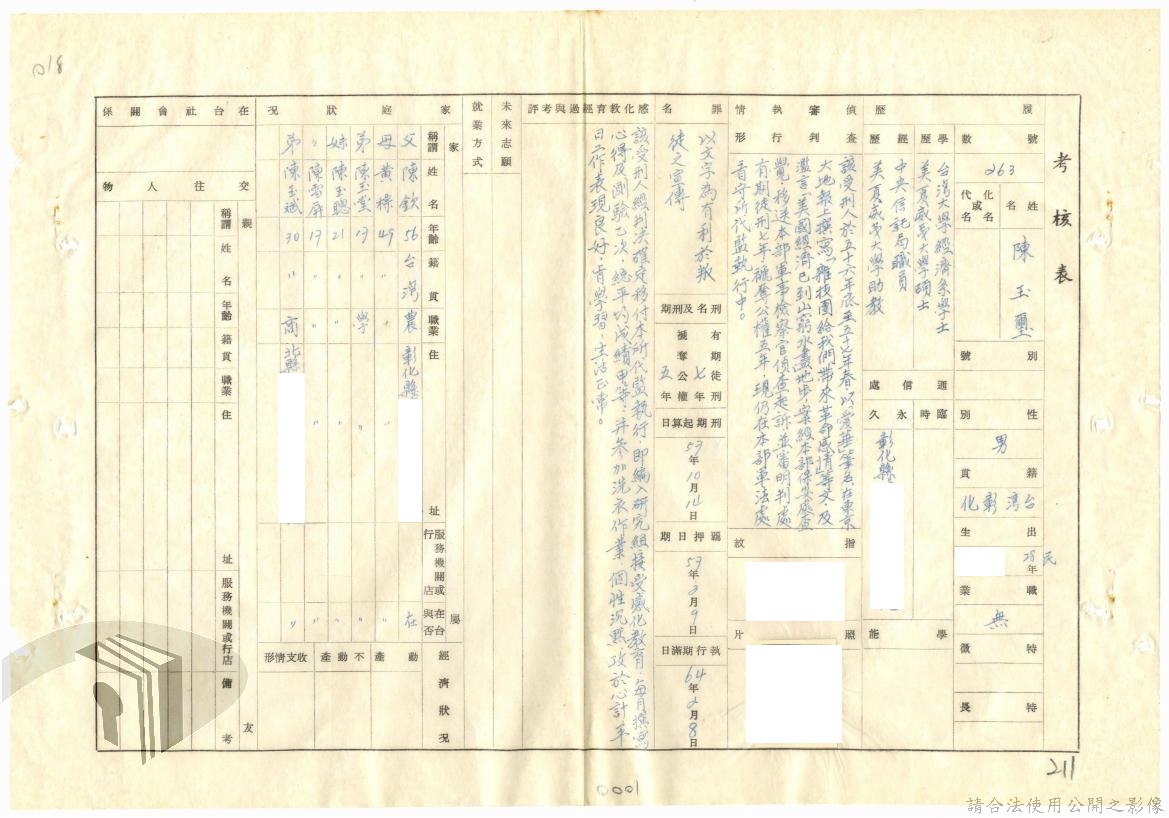 018
考核表
履歷
號數
263
姓名
陳玉璽
化名或代名
別號
性別
男
籍貫
台灣彰化
出生
民28年
職業
無
特徵
特長
學歷
台灣大學經濟系學士
美夏威夷大學碩士
經歷
中央信託局職員
美夏威夷大學助教
通信處
臨時
永久
彰化縣
學能
偵查審判執行情形
該受刑人於五十六年底至五十七年春,以「愛華」筆名在東京
大地報上撰寫「雜技團給我們帶來革命感情」等文,及
濫言「美國經濟已到山窮水盡地步」,案經本部保安處查
覺,移送本部軍事檢察官偵查起訴並審明判處
有期徒刑七年,褫奪公權五年,現仍在本部軍法處
看守所代監執行中。
指紋
照片
罪名
以文字為有利於叛
徒之宣傳
刑名及刑期
有期徒刑七年
褫奪公權五年
刑期起算日
57年10月14日
羈押日期
57年2月9日
執行期滿日
64年2月8日
感化教育經過與考評
該受刑人經判決確定移付本所代監執行,即編入研究組接受感化教育,每月撰寫
心得及測驗乙次,總平均成績甲等,并參加洗衣作業,個性沉默,攻於心計,平
日工作表現良好,肯學習,生活正常。
未來志願
就業方式
家庭狀況
家屬
稱謂 姓名 年齡 籍貫 職業 住址 服務機關或行店 在台與否
父 陳欽 56 台灣 農 彰化縣 在
母 黃棉 49 〃 〃 〃 〃
弟 陳玉堂 19 〃 學 〃 〃
妹 陳玉聰 21 〃 〃 〃 〃
〃 陳雪屏 17 〃 〃 〃 〃
弟 陳玉斌 30 〃 商 北縣 〃
經濟狀況
動產
不動產
收支情形
在台社會關係
交往人物
親友
稱謂 姓名 年齡 籍貫 職業 住址 服務機關或行店 備考
211
0001
請合法使用公開之影像